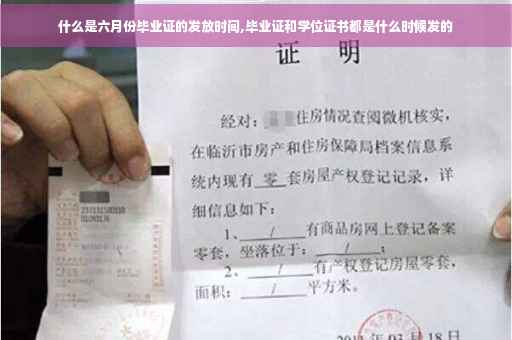 什么是六月份毕业证的发放时间,毕业证和学位证书都是什么时候发的
证 明
经对: 住房情况查阅微机核实,
在临沂市房产和住房保障局档案信息系
统内现有 零 套房屋产权登记记录,详
细信息如下:
1、 / 有商品房网上登记备案
零套,坐落位于: / ;
2、 / 有产权登记房屋零套,
面积: / 平方米。